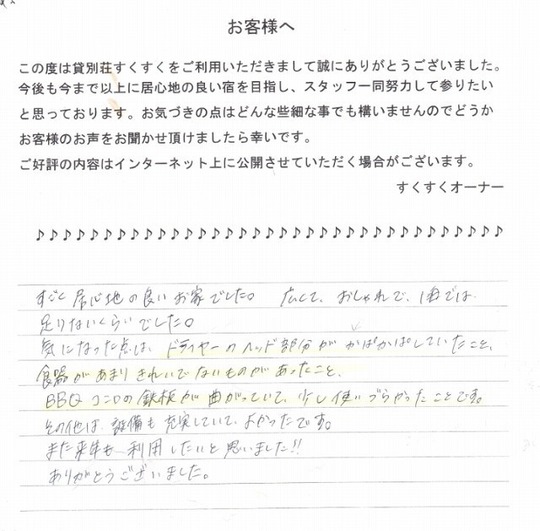 お客様へ
この度は貸別荘すくすくをご利用いただきまして誠にありがとうございました。
今後も今まで以上に居心地の良い宿を目指し、スタッフ一同努力して参りたい
と思っております。お気づきの点はどんな些細な事でも構いませんのでどうか
お客様のお声をお聞かせ頂けましたら幸いです。
ご好評の内容はインターネット上に公開させていただく場合がございます。
すくすくオーナー
♪♪♪♪♪♪♪♪♪♪♪♪♪♪♪♪♪♪♪♪♪♪♪♪♪♪♪♪♪♪♪♪♪♪♪
すごく居心地の良いお家でした。 広くて、おしゃれで、1泊では
足りないくらいでした。
気になった点は、ドライヤーのヘッド部分がかぱかぱしていたこと、
食器があまりきれいでないものがあったこと、
BBQコンロの鉄板が曲がっていて、少し使いづらかったことです。
その他は、設備も充実していて、よかったです。
また来年も利用したいと思いました!!
ありがとうございました。